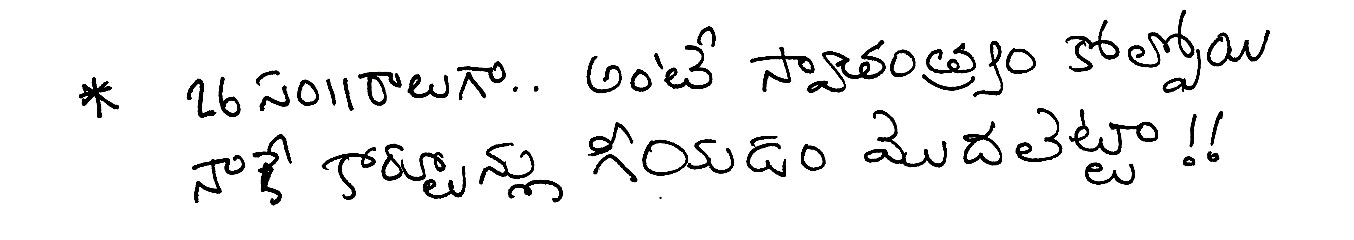 * 26 సం॥రాలుగా.. అంటే స్వాతంత్ర్యం కోల్పోయి
నాకే కార్టూన్లు గీయడం మొదలెట్టా !!